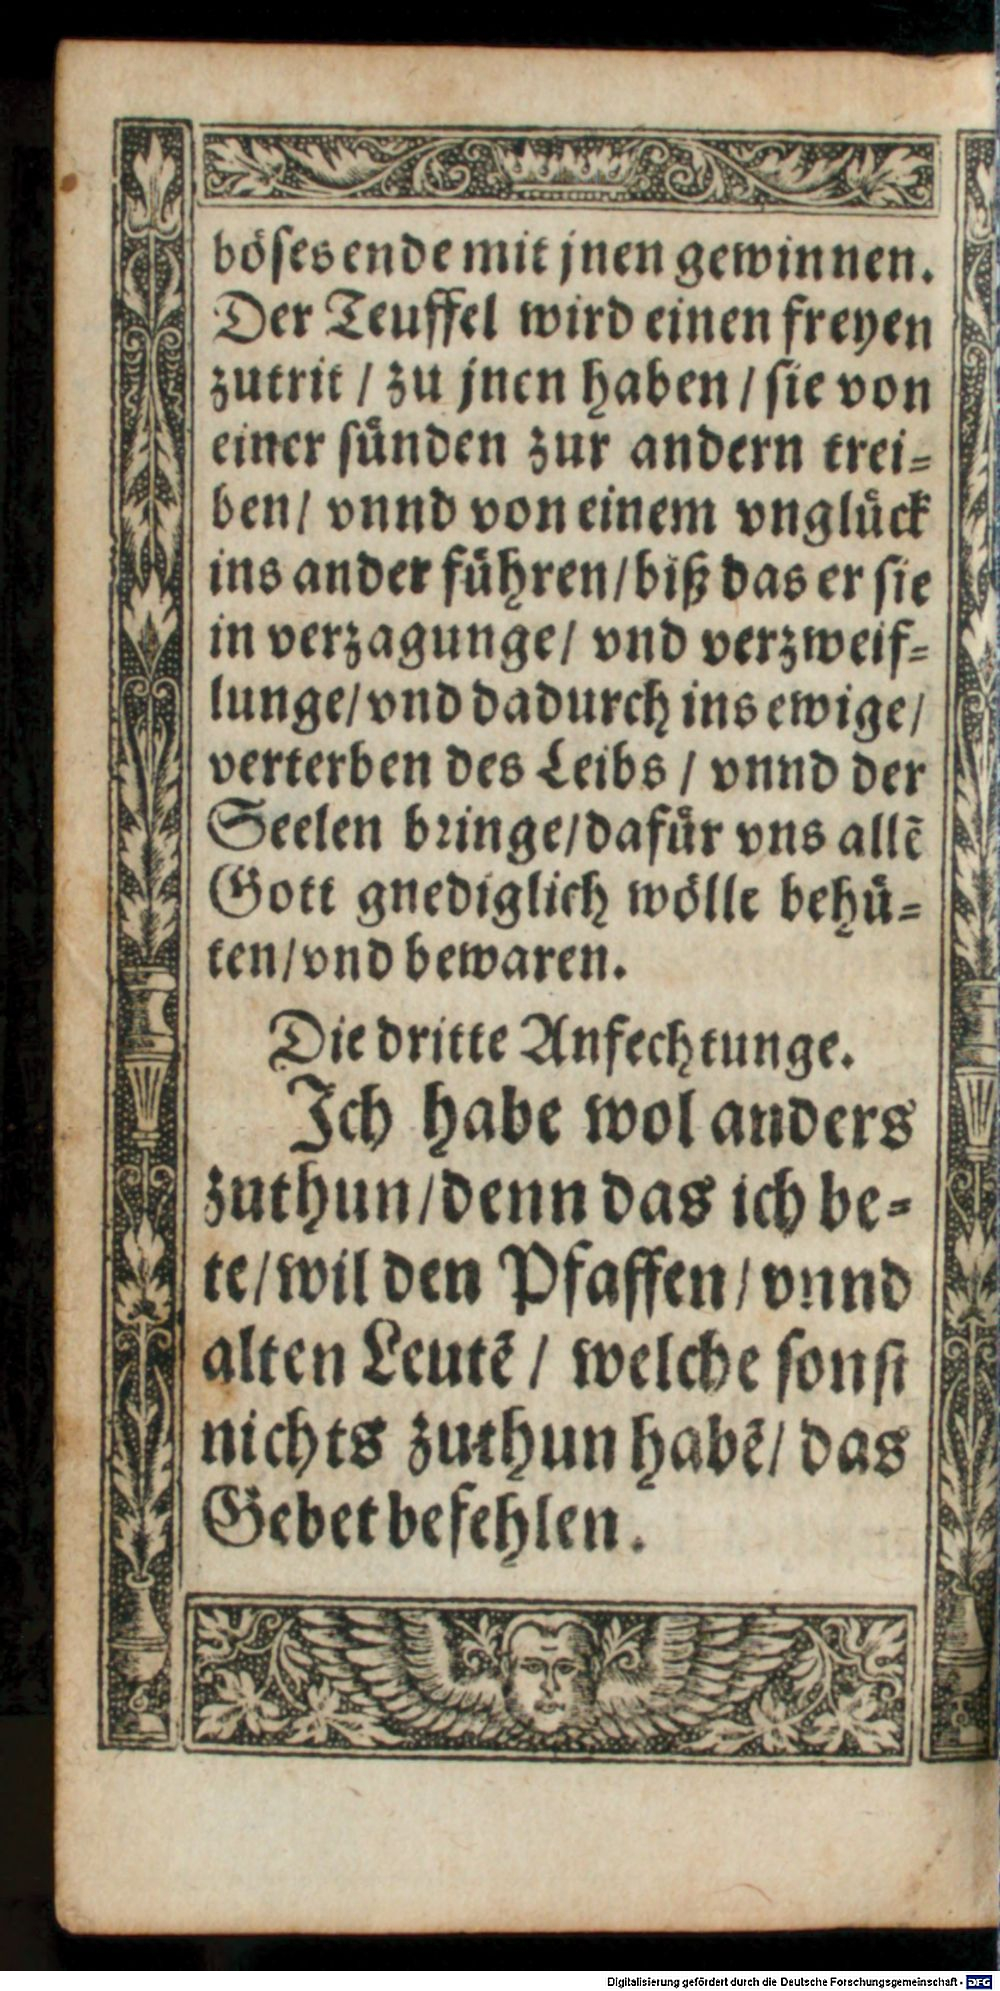 böses ende mit jnen gewinnen.
Der Teuffel wird einen freyen
zutrit / zu jnen haben / sie von
einer sünden zur andern trei=
ben / vnnd von einem vnglück
ins ander führen / biß das er sie
in verzagunge / vnd verzweif=
lunge / vnd dadurch ins ewige /
verterben des Leibs / vnnd der
Seelen bringe / dafür vns allē
Gott gnediglich wölle behü=
ten / vnd bewaren.
Die dritte Anfechtunge.
Ich habe wol anders
zuthun / denn das ich be=
te / wil den Pfaffen / vnnd
alten Leutē / welche sonst
nichts zuthun habē / das
Gebet befehlen.
Digitalisierung gefördert durch die Deutsche Forschungsgemeinschaft - DFG